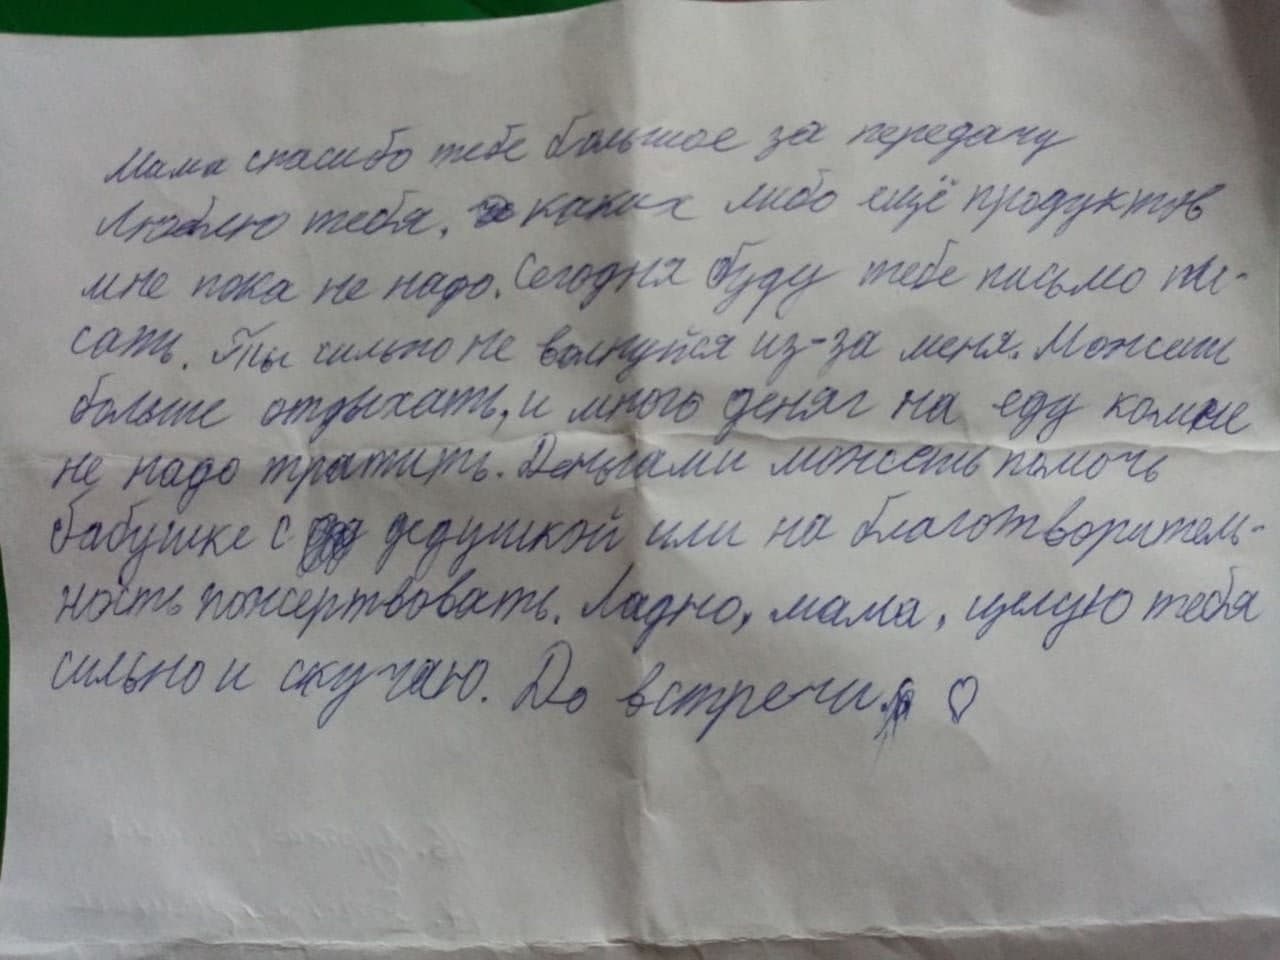 Мама спасибо тебе большое за передачу
Люблю тебя, каких либо ещё продуктов
мне пока не надо. Сегодня буду тебе письмо пи-
сать. Ты сильно не волнуйся из-за меня. Можешь
больше отдыхать, и много деняг на еду ко мне
не надо тратить. Деньгами можешь помочь
бабушке с дедушкой или на благотворитель-
ность пожертвовать. Ладно, мама, целую тебя
сильно и скучаю. До встречи. ♡